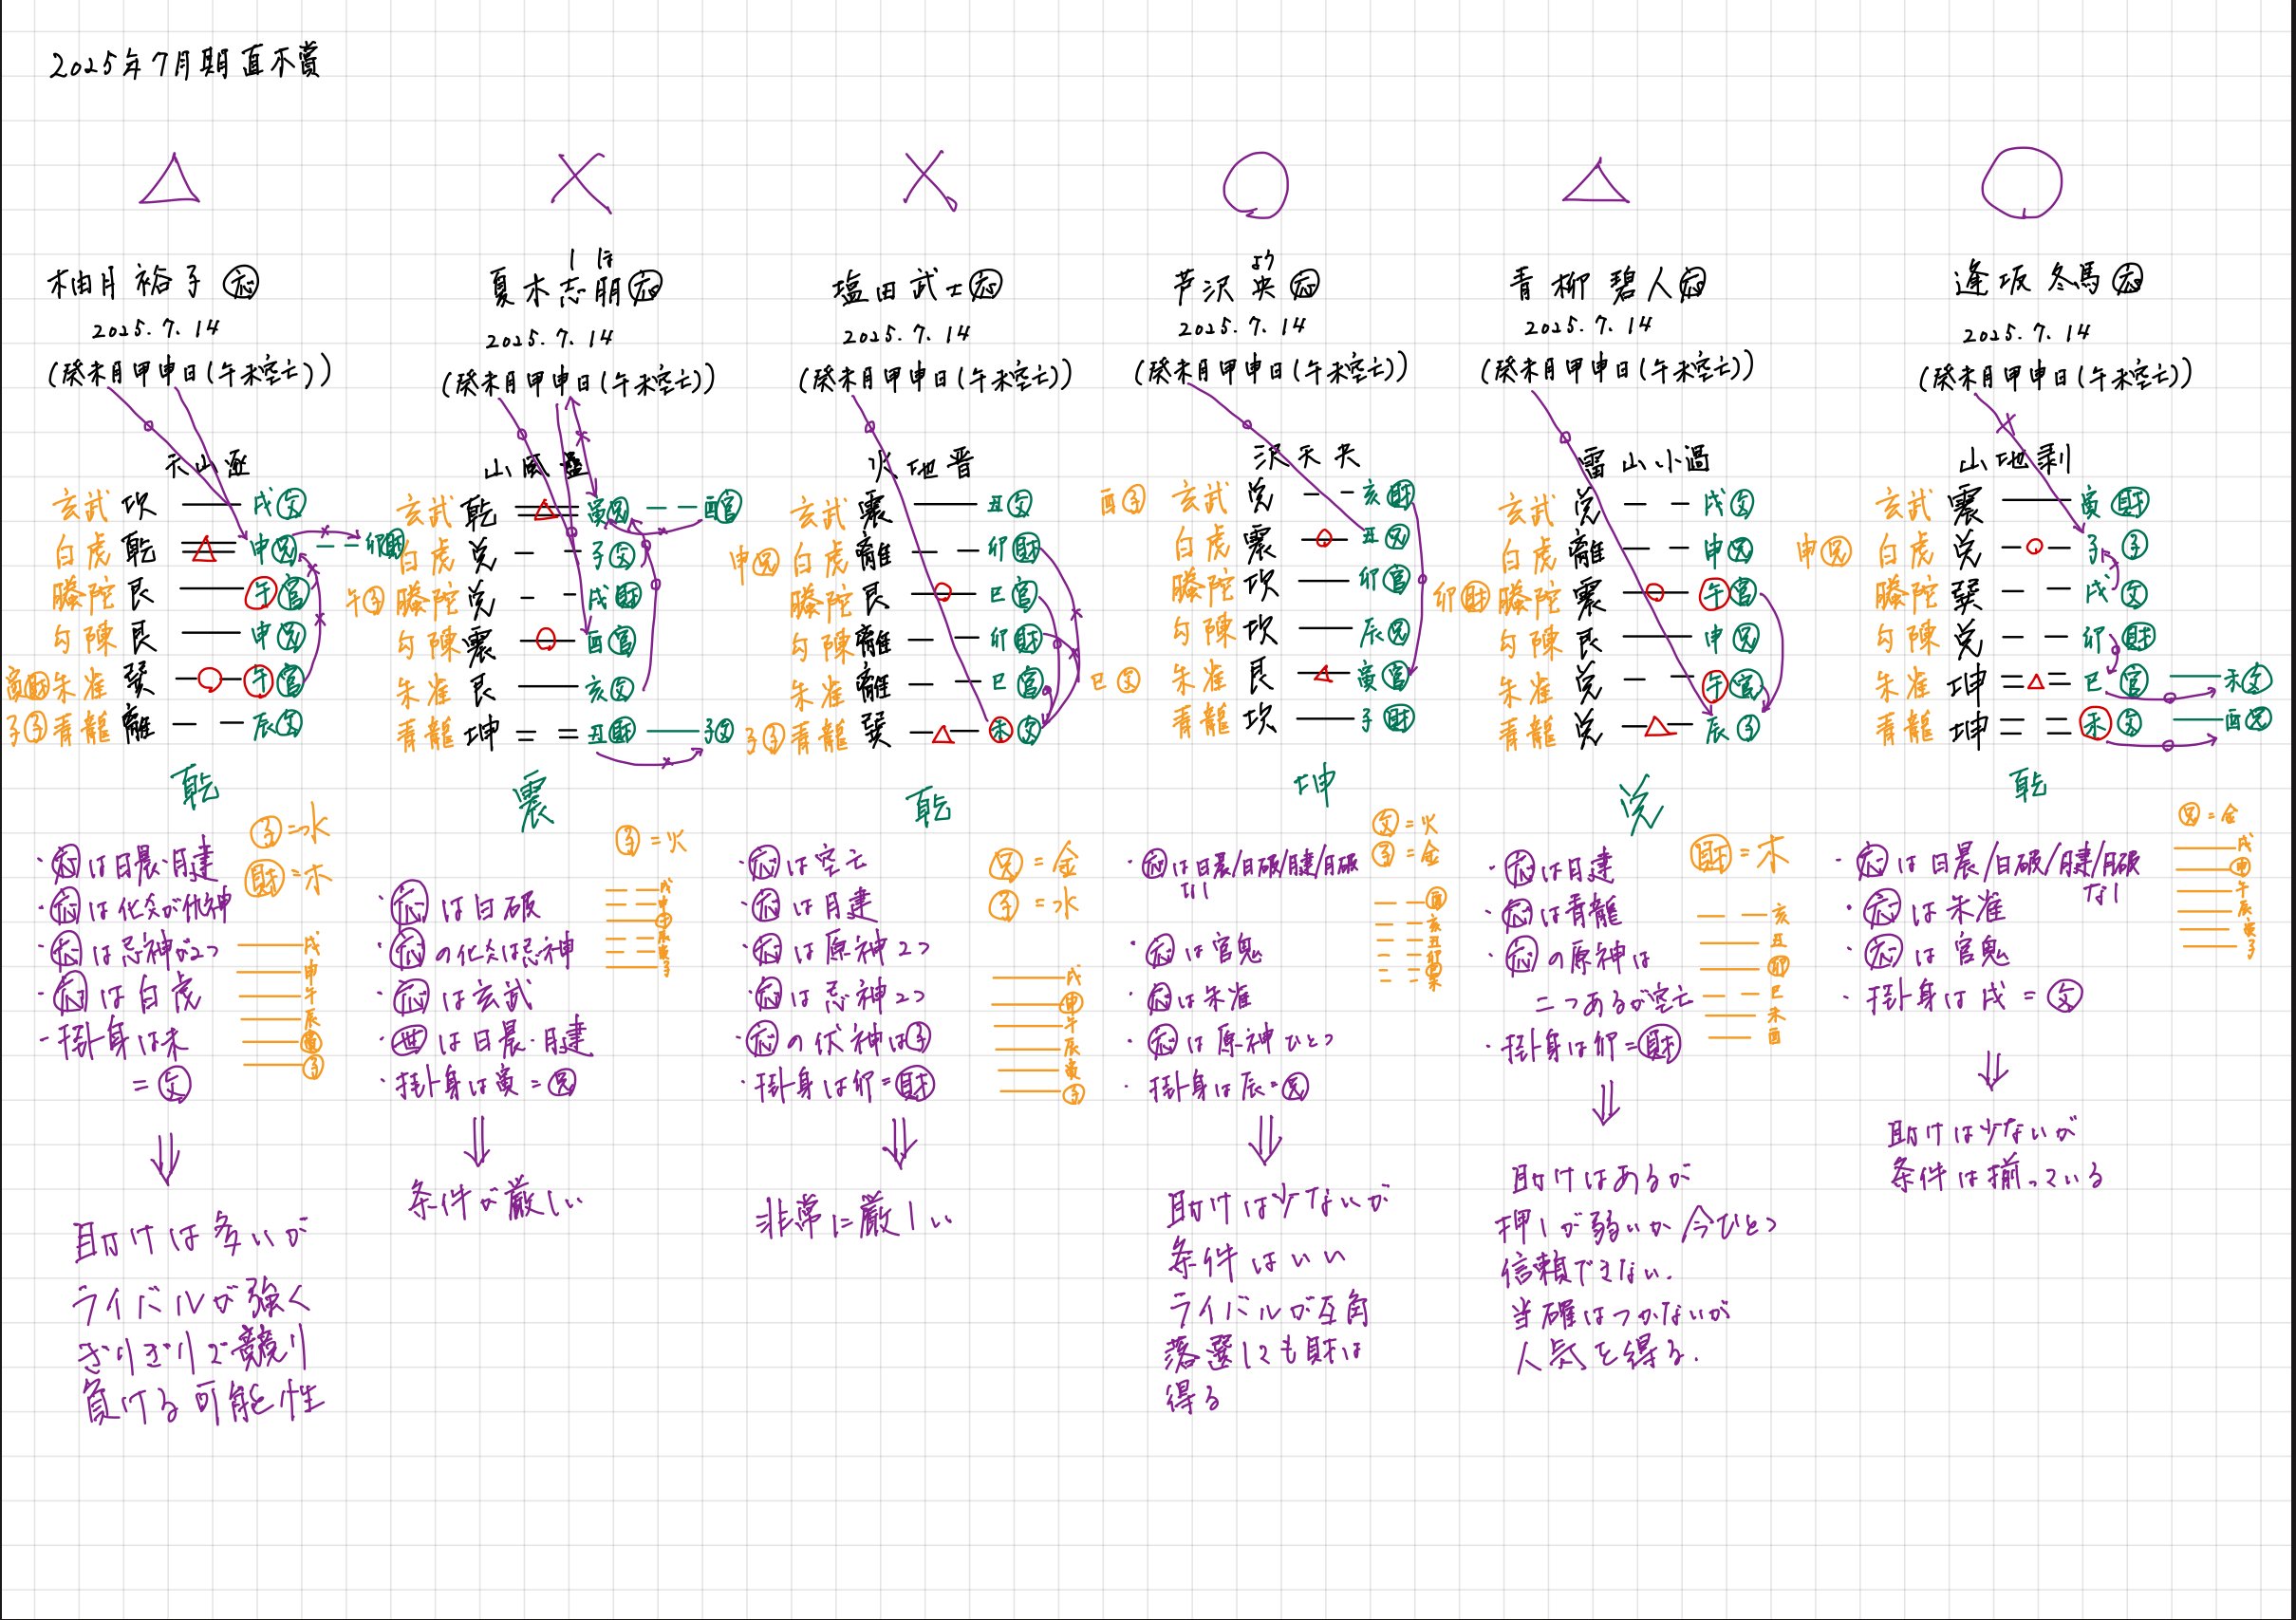 2025年7月期直木賞
△
柚月裕子 応
2025.7.14
(癸未月甲申日(午未空亡))
天山遯
玄武 坎 戌父
白虎 乾 申兄 卯財
螣陀 艮 午官
勾陳 艮 申兄
寅財 朱雀 巽 午官
子子 青龍 離 辰父
乾
子=水
財=木
・応は日晨・月建
・応は化爻が仇神
・応は忌神が2つ
・応は白虎
・掛身は未
=父
戌
申
午
辰
寅
子
⇓
助けは多いが
ライバルが強く
ぎりぎりで競り
負ける可能性
×
しほ
夏木志朋 応
2025.7.14
(癸未月甲申日(午未空亡))
山風蠱
玄武 乾 寅兄 酉官
白虎 兌 子父
午子 螣陀 兌 戌財
勾陳 震 酉官
朱雀 艮 亥父
青龍 坤 丑財 子父
震
子=火
・応は日破
・応の化爻は忌神
・応は玄武
・世は日晨・月建
・掛身は寅=兄
戌
申
午
辰
寅
子
⇓
条件が厳しい
×
塩田武士 応
2025.7.14
(癸未月甲申日(午未空亡))
火地晋
玄武 震 丑父
申兄 白虎 離 卯財
螣陀 艮 巳官
勾陳 離 卯財
朱雀 離 巳官
子子 青龍 巽 未父
乾
兄=金
子=水
・応は空亡
・応は月建
・応は原神2つ
・応は忌神2つ
・応の伏神は子
・掛身は卯=財
戌
申
午
辰
寅
子
⇓
非常に厳しい
○
よう
芦沢央 応
2025.7.14
(癸未月甲申日(午未空亡))
沢天夬
酉子 玄武 兌 亥財
白虎 震 丑兄
螣陀 坎 卯官
勾陳 坎 辰兄
巳父 朱雀 艮 寅官
青龍 坎 子財
坤
父=火
子=金
・応は日晨/日破/月建/月破
なし
・応は官鬼
・応は朱雀
・応は原神ひとつ
・掛身は辰=兄
酉
亥
丑
卯
巳
未
⇓
助けは少ないが
条件はいい
ライバルが互角
落選しても財は
得る
△
青柳碧人 応
2025.7.14
(癸未月甲申日(午未空亡))
雷山小過
玄武 兌 戌父
白虎 離 申兄
卯財 螣陀 震 午官
勾陳 艮 申兄
朱雀 兌 午官
青龍 兌 辰子
兌
財=木
・応は月建
・応は青龍
・応の原神は
二つあるが空亡
・掛身は卯=財
亥
丑
卯
巳
未
酉
⇓
助けはあるが
押しが弱いか今ひとつ
信頼できない.
当確はつかないが
人気を得る.
○
逢坂冬馬 応
2025.7.14
(癸未月甲申日(午未空亡))
山地剥
玄武 震 寅財
申兄 白虎 兌 子子
螣陀 巽 戌父
勾陳 兌 卯財
朱雀 坤 巳官 未父
青龍 坤 未父 酉兄
乾
兄=金
・応は日晨/日破/月建/月破
なし
・応は朱雀
・応は官鬼
・掛身は戌=父
戌
申
午
辰
寅
子
⇓
助けは少ないが
条件は揃っている